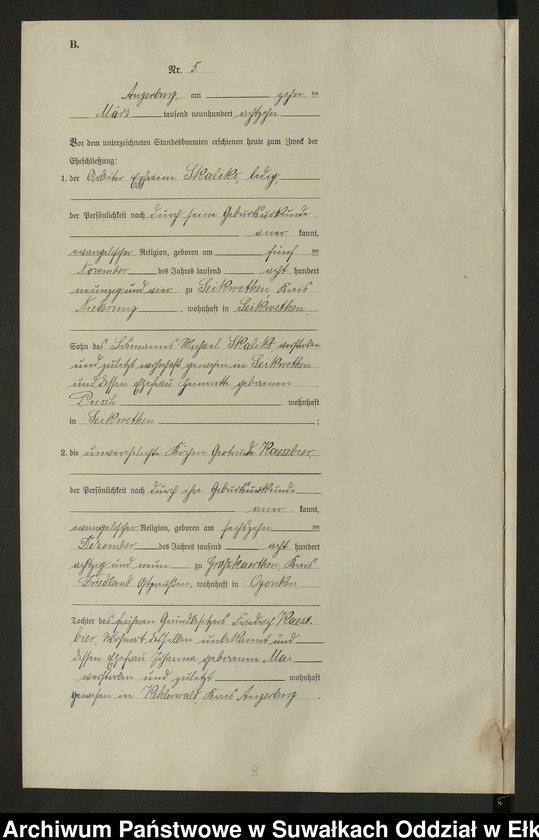 B.
Nr. 5.
Angerburg, am zehn ten
März tausend neunhundert achtzehn.
Vor dem unterzeichneten Standesbeamten erschienen heute zum Zweck der
Eheschließung:
1. der Arbeiter Ephraim Skaliks, ledig,
der Persönlichkeit nach durch seine Geburtsurkunde
aner kannt,
evangelischer Religion, geboren am fünf ten
November des Jahres tausend acht hundert
neunzig und vier zu Seikwethen, Kreis
Niederung, wohnhaft in Seikwethen
Sohn des Michael Skaliks, verstorben
und zuletzt wohnhaft gewesen in Seikwethen
und dessen Ehefrau Henriette geborenen
wohnhaft
in Seikwethen ;
2. die unverehelichte Köchin Gertrude Kaesebier
der Persönlichkeit nach durch ihre Geburtsurkunde
aner kannt,
evangelischer Religion, geboren am sechszehn ten
Dezember des Jahres tausend acht hundert
achtzig und neun zu Kreis
Friedland Ostpreußen, wohnhaft in Ogonken
Tochter des früheren Grundbesitzers Friedrich Kaese-
bier, Wohnort desselben unbekannt und
dessen Ehefrau Johanna geborenen Mai
verstorben und zuletzt wohnhaft
gewesen in Kehlerwald Kreis Angerburg.
9
Archiwum Państwowe w Suwałkach Oddział w Ełk